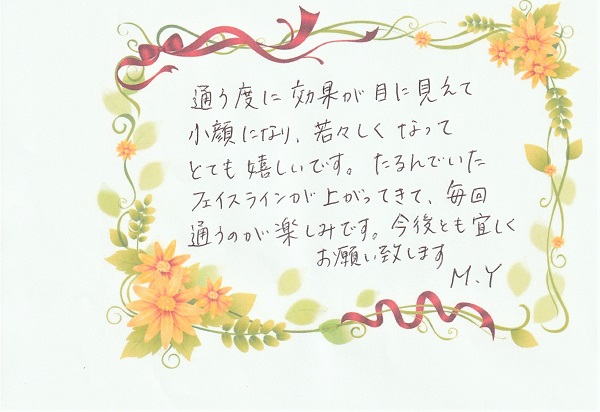 通う度に効果が目に見えて
小顔になり、若々しくなって
とても嬉しいです。たるんでいた
フェイスラインが上がってきて、毎回
通うのが楽しみです。今後とも宜しく
お願い致します
M.Y